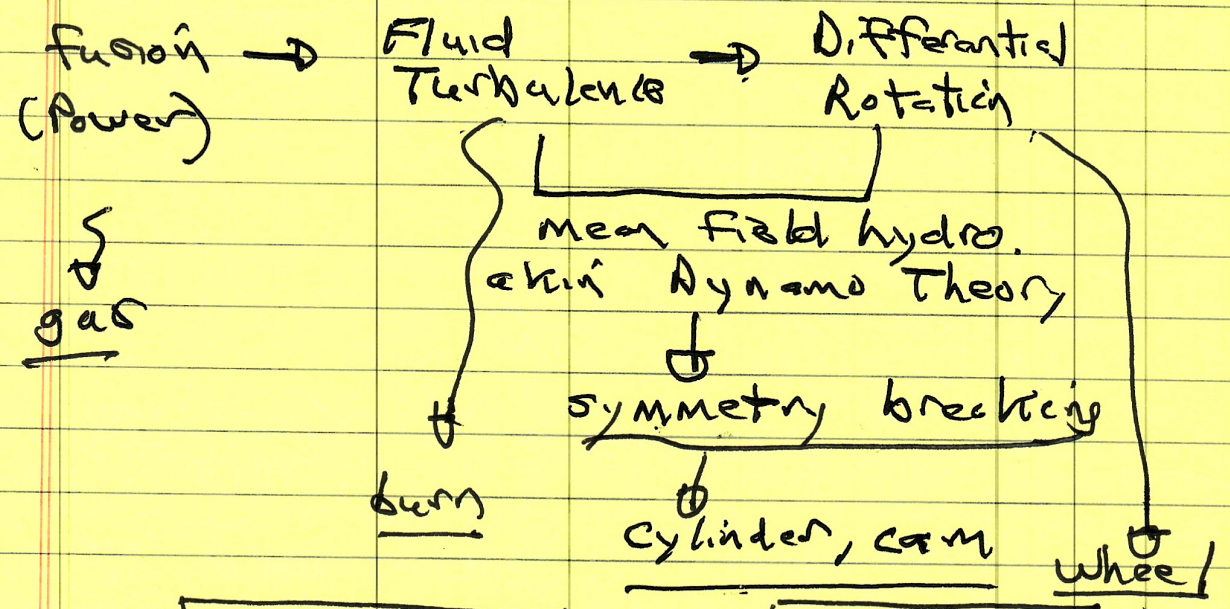 Fusion → Fluid Turbulence → Differential Rotation
(Power)
mean field hydro.
akin Dynamo Theory
gas
symmetry breaking
burn
cylinder, cam
wheel